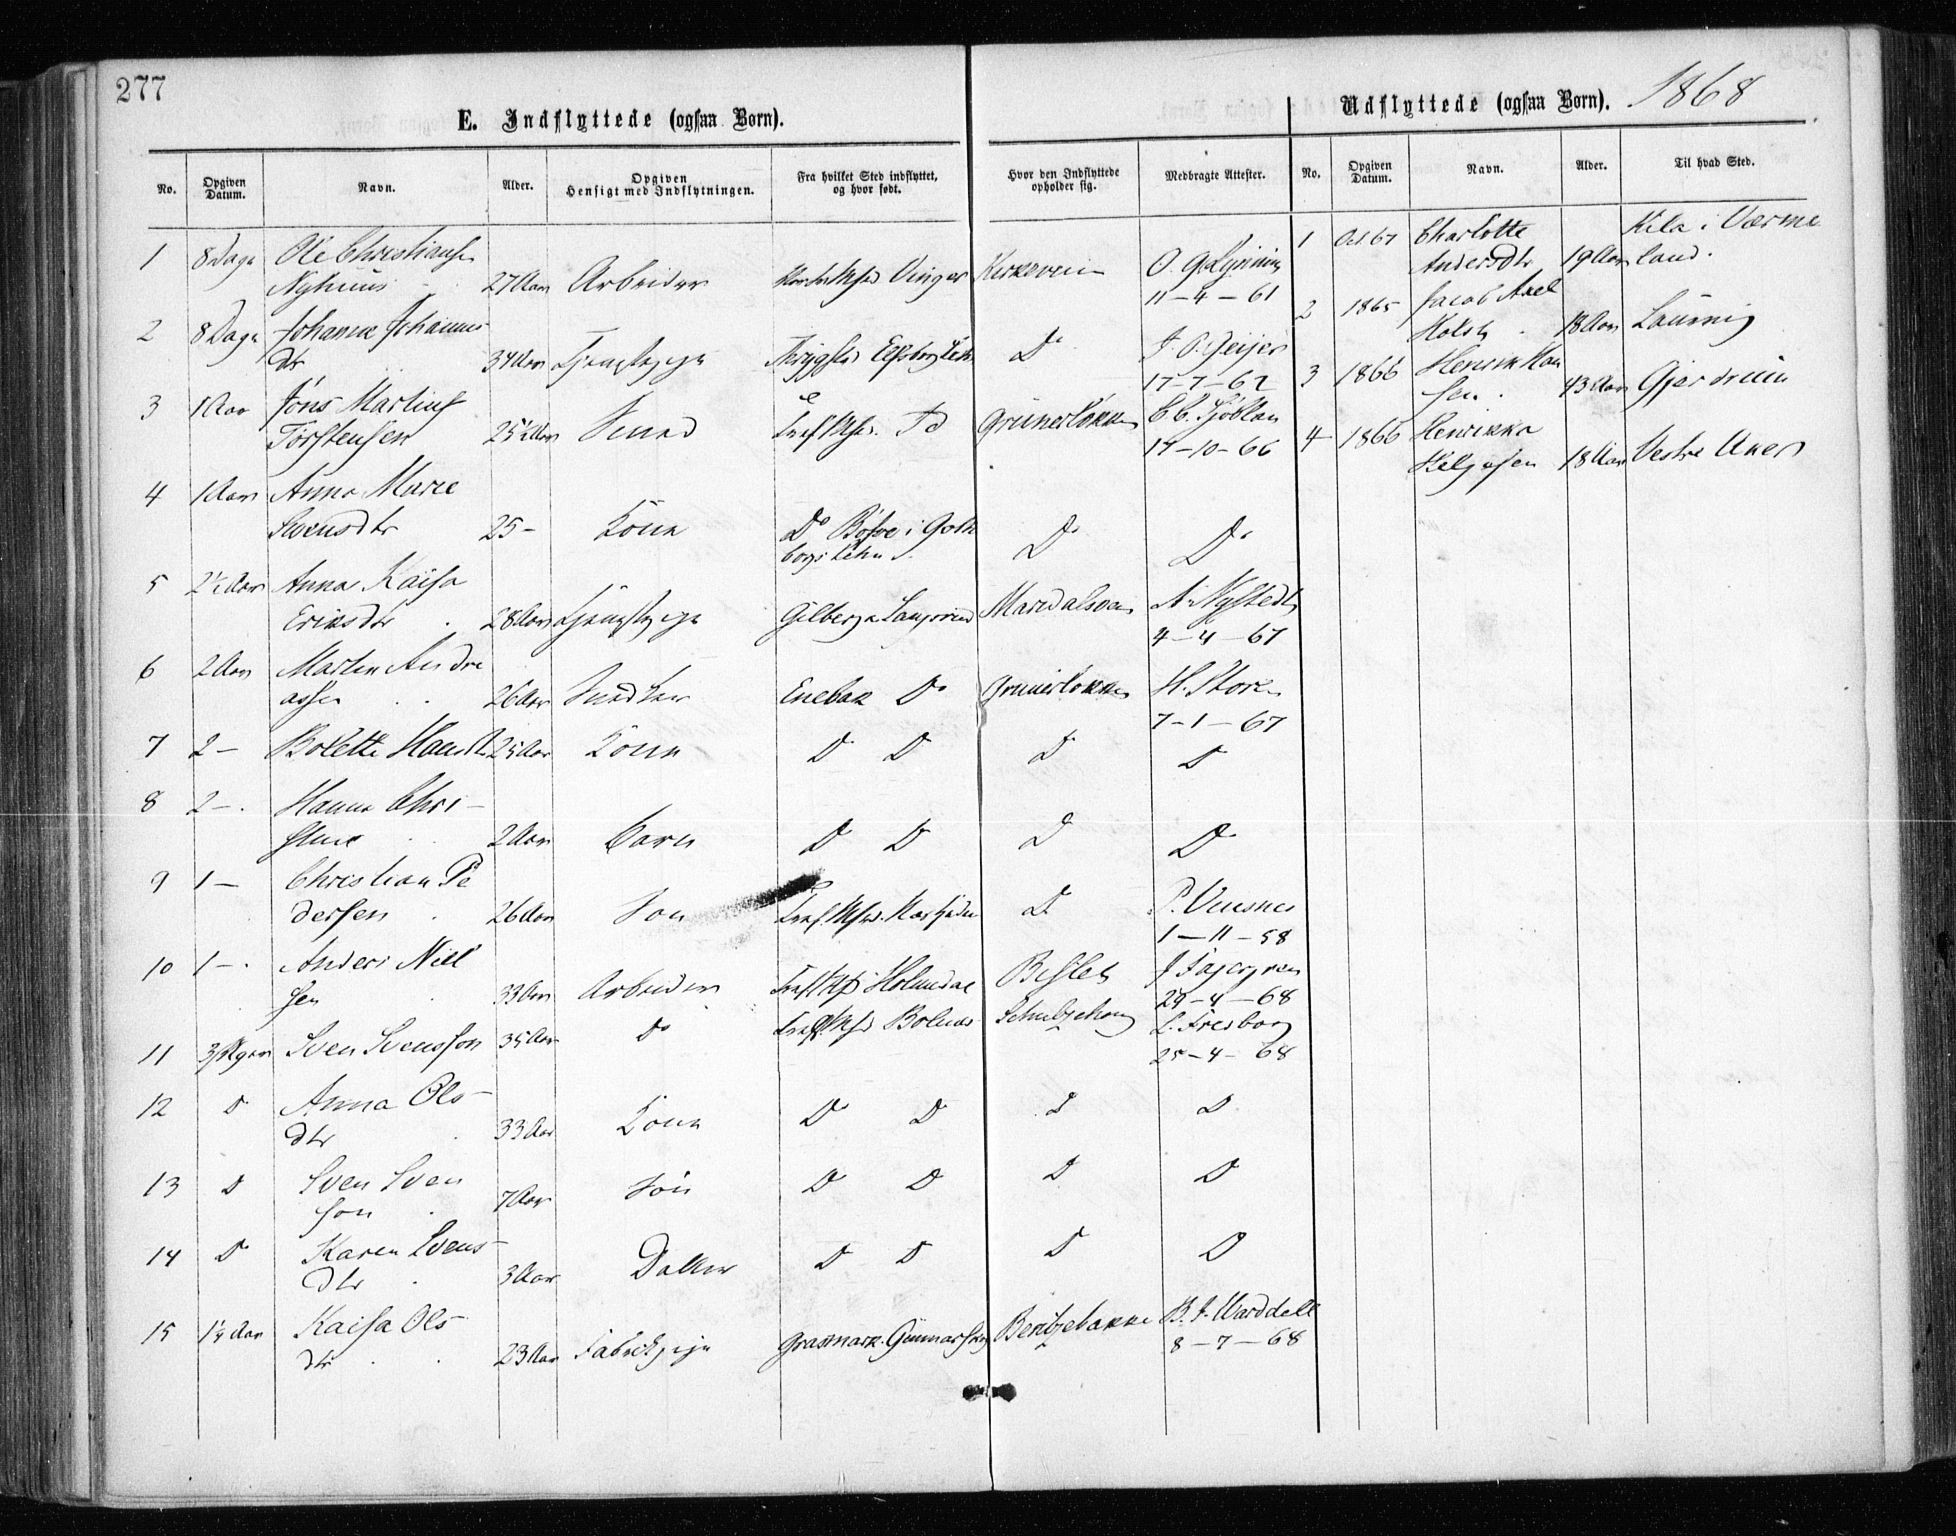 277
E. Indflyttede (ogsaa Børn).
Udflyttede (ogsaa Børn). 1868
No. Opgiven Datum. Navn. Alder. Opgiven Hensigt med Indflytningen. Fra hvilket Sted indflyttet, og hvor født. Hvor den Indflyttede opholder sig. Medbragte Attester.
No. Opgiven Datum. Navn. Alder. Til hvad Sted.
1 8 Dage Ole Christiansen
Nyhuus 27 Aar Arbeider Vinger Kirkeveien O. G.
11-4-61
2 8 Dage Johanna Johannes
dtr 34 Aar Tjenestepige Elfsborg Lehn Do J. O. Geijer
17-7-62
3 1 Aar Jöns Martin
Törstensen 25½ Aar Smed Do Grünerløkken C. C. Sjöblan
14-10-66
4 1 Aar Anna Marie
Svensdtr 25- Kone Do i Goth
borgs Lehn Do Do
5 2½ Aar Anna Kaisa
Eriksdtr 28 Aar Tjenestepige Gilberga Maridalsvei A. Nystedt
4-4-67
6 2 Aar Martin Andre
assen 26 Aar Snedker Enebak Do Grünerløkken H. Storen
7-1-67
7 2- Bolette Hansdtr 25 Aar Kone D D D D
8 2-. Hanna Chri-
stine 2 Aar Barn D D D D
9 1- Christian Pe
dersen 26 Aar D P.
1-11-58
10 1-. Anders Niel
sen 33 Aar Arbeider Holmedal Beslet J. Fagergren
29-4-68
11 Sven Svensson 35 Aar Do L. Fresborg
25-4-68
12 D Anna Ols-
dtr 33 Aar Kone D D D D
13 D Sven Sven
son 7 Aar Søn D D D D
14 D Karen Svens-
dtr 3 Aar Datter D D D D
15 1¼ Aar Kaisa Ols-
dtr 23 Aar Fabrikpige Grasmark. Gunnarskog Bentsebakke B. J. Warddell
8-7-68
1 Oct 67 Charlotte
Andersdtr 19 Aar Kila i Værme
land.
2 1865 Jacob Axel
Holst 18 Aar Laurvig
3 1866 Henrik Han
sen. 43 Aar Gjerdrum
4 1866 Henrikka
Helgesen 18 Aar Vestre Aker